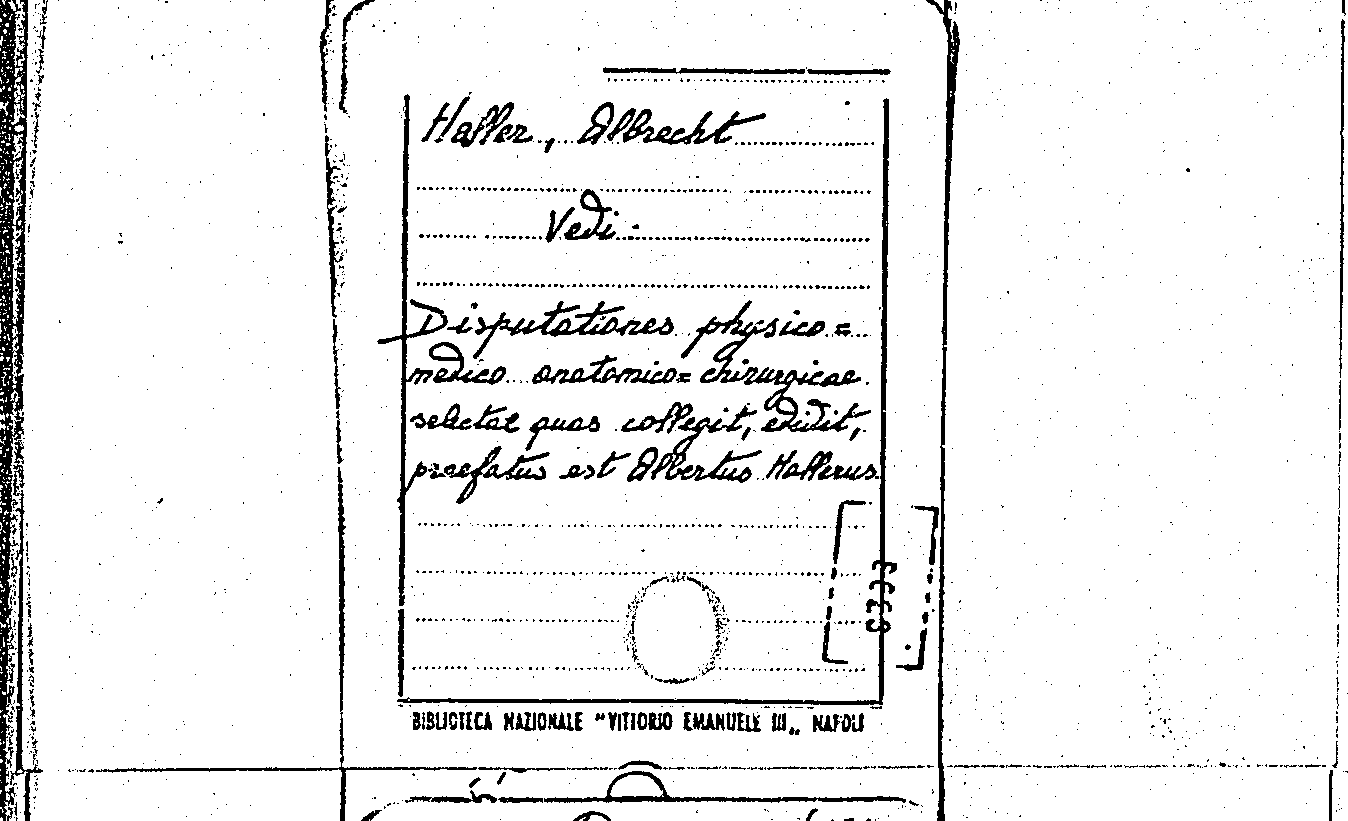 Haller, Albrecht
Vedi:
Disputationes physico=
medico anatomico= chirurgicae
selectae quas collegit, edidit,
praefatus est Albertus Hallerus
BIBLIOTECA NAZIONALE "VITTORIO EMANUELE III„ NAPOLI